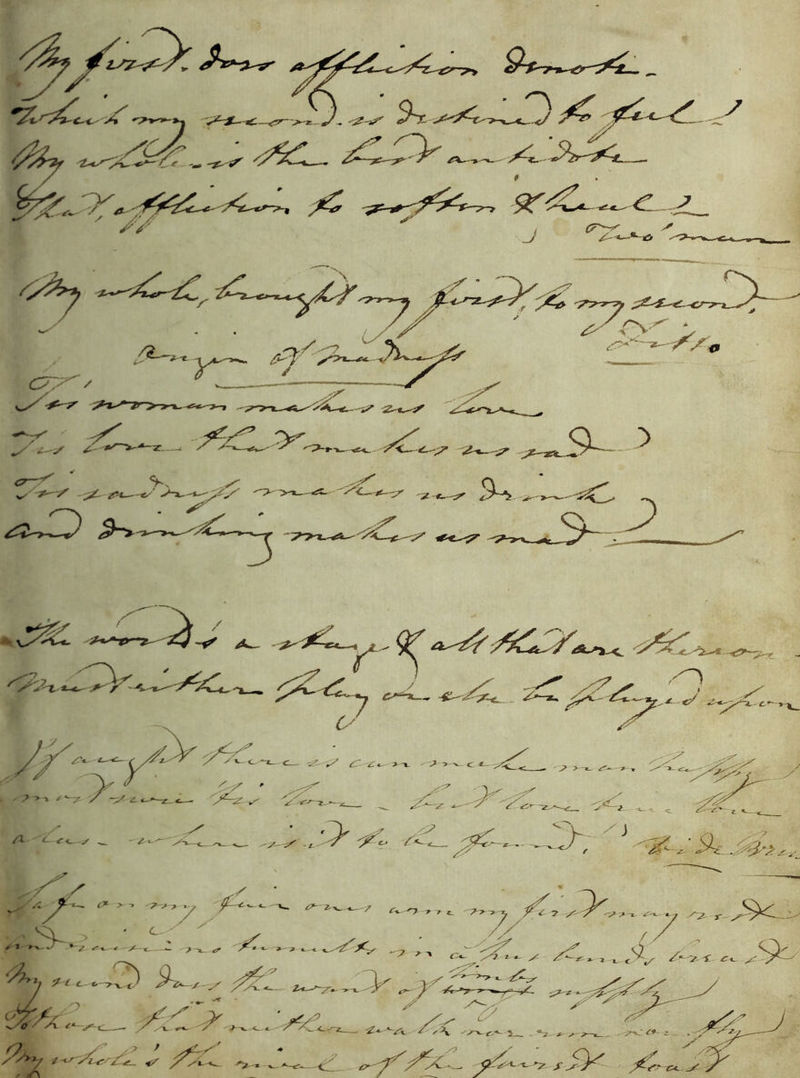 My first, does affliction denote -
Which my second is destined to feel
My whole is the best antidote
That, affliction to soften & heal
Woe'man
My whole, brought my first, to my second.
Ditto
Origin of Madness
Tis woman makes us love,
Tis love that makes us sad
Tis sadness makes us drink,
And drinking makes us mad
The world's a stage & all that are thereon
Must either play or else be played upon
If aught there is can make man happy
most sure 'tis love - but love true love
alas - where is it to be found,
Safe on my fair ones arm my first may rest
And raise no tumults in a husbands breast
My second does the want of limbs supply
To those that neither walk nor swim nor fly
My whole's the rival of the fairest toast